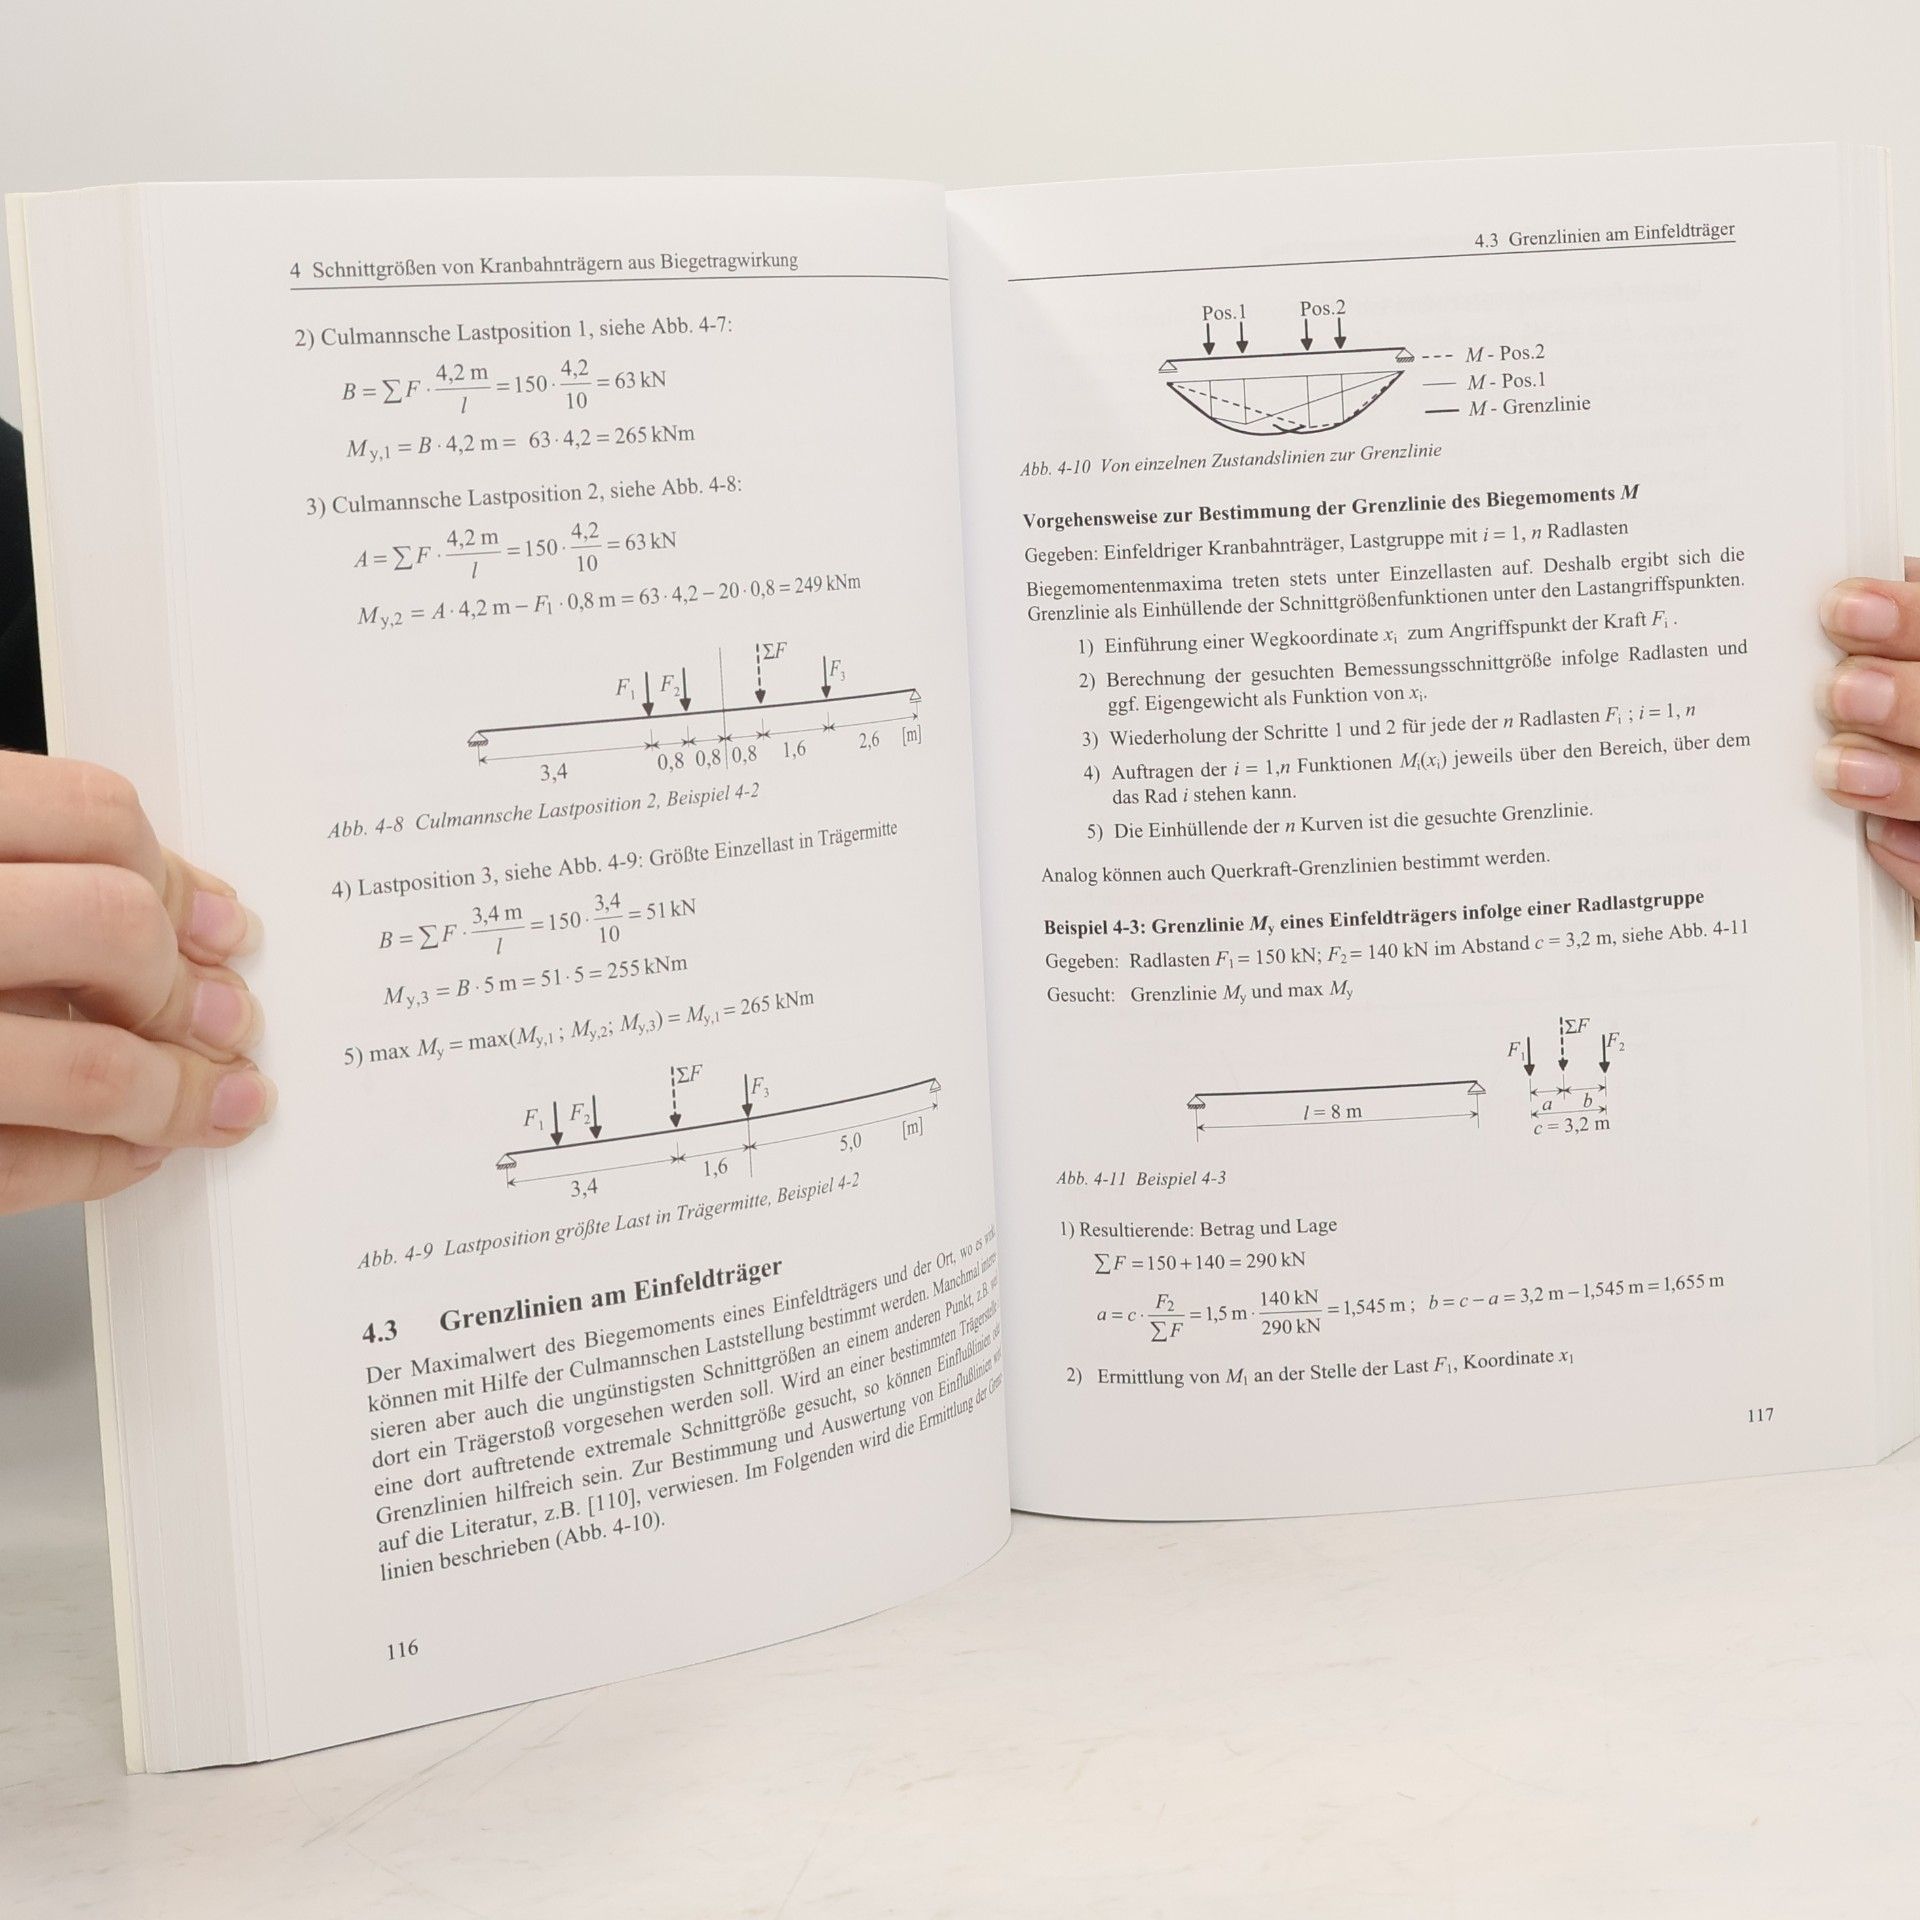 4 Schnittgrößen von Kranbahnträgern aus Biegetragwirkung
2) Culmannsche Lastposition 1, siehe Abb. 4-7:
B = ∑F · 4,2 m / l = 150 · 4,2 / 10 = 63 kN
M_y,1 = B · 4,2 m = 63 · 4,2 = 265 kNm
3) Culmannsche Lastposition 2, siehe Abb. 4-8:
A = ∑F · 4,2 m / l = 150 · 4,2 / 10 = 63 kN
M_y,2 = A · 4,2 m – F₁ · 0,8 m = 63 · 4,2 – 20 · 0,8 = 249 kNm
F₁ F₂ ΣF F₃
3,4 0,8 0,8 0,8 1,6 2,6 [m]
Abb. 4-8 Culmannsche Lastposition 2, Beispiel 4-2
4) Lastposition 3, siehe Abb. 4-9: Größte Einzellast in Trägermitte
B = ∑F · 3,4 m / l = 150 · 3,4 / 10 = 51 kN
M_y,3 = B · 5 m = 51 · 5 = 255 kNm
5) max M_y = max(M_y,1 ; M_y,2; M_y,3) = M_y,1 = 265 kNm
F₁ F₂ ΣF F₃
3,4 1,6 5,0 [m]
Abb. 4-9 Lastposition größte Last in Trägermitte, Beispiel 4-2
4.3 Grenzlinien am Einfeldträger
Der Maximalwert des Biegemoments eines Einfeldträgers und der Ort, wo es wirkt
können mit Hilfe der Culmannschen Laststellung bestimmt werden. Manchmal
sieren aber auch die ungünstigsten Schnittgrößen an einem anderen Punkt, z.B.
dort ein Trägerstoß vorgesehen werden soll. Wird an einer bestimmten
eine dort auftretende extremale Schnittgröße gesucht, so können Einflußlinien
Grenzlinien hilfreich sein. Zur Bestimmung und Auswertung von Einflußlinien
auf die Literatur, z.B. [110], verwiesen. Im Folgenden wird die Ermittlung der
linien beschrieben (Abb. 4-10).
116
4.3 Grenzlinien am Einfeldträger
Pos.1 Pos.2
M - Pos.2
M - Pos.1
M - Grenzlinie
Abb. 4-10 Von einzelnen Zustandslinien zur Grenzlinie
Vorgehensweise zur Bestimmung der Grenzlinie des Biegemoments M
Gegeben: Einfeldriger Kranbahnträger, Lastgruppe mit i = 1, n Radlasten
Biegemomentenmaxima treten stets unter Einzellasten auf. Deshalb ergibt sich die
Grenzlinie als Einhüllende der Schnittgrößenfunktionen unter den Lastangriffspunkten.
1) Einführung einer Wegkoordinate xᵢ zum Angriffspunkt der Kraft Fᵢ .
2) Berechnung der gesuchten Bemessungsschnittgröße infolge Radlasten und
ggf. Eigengewicht als Funktion von xᵢ.
3) Wiederholung der Schritte 1 und 2 für jede der n Radlasten Fᵢ ; i = 1, n
4) Auftragen der i = 1,n Funktionen Mᵢ(xᵢ) jeweils über den Bereich, über dem
das Rad i stehen kann.
5) Die Einhüllende der n Kurven ist die gesuchte Grenzlinie.
Analog können auch Querkraft-Grenzlinien bestimmt werden.
Beispiel 4-3: Grenzlinie M_y eines Einfeldträgers infolge einer Radlastgruppe
Gegeben: Radlasten F₁ = 150 kN; F₂ = 140 kN im Abstand c = 3,2 m, siehe Abb. 4-11
Gesucht: Grenzlinie M_y und max M_y
F₁ ΣF F₂
l = 8 m
a b
c = 3,2 m
Abb. 4-11 Beispiel 4-3
1) Resultierende: Betrag und Lage
∑F = 150 + 140 = 290 kN
a = c · F₂ / ∑F = 1,5 m · 140 kN / 290 kN = 1,545 m ; b = c – a = 3,2 m – 1,545 m = 1,655 m
2) Ermittlung von M₁ an der Stelle der Last F₁, Koordinate x₁
117